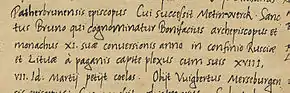 Patherbrunensis episcopus Cui successit Meinwerck. Sanc
tus Bruno qui cognominatur Bonifacius archepiscopus et
monachus XI. suæ conversionis anno in confinio Russiæ
et Lituæ à paganis capite plexus cum suis XVIII,
VII. Id. Martij petijt coelos. Obijt Vuigbertus Merseburgen